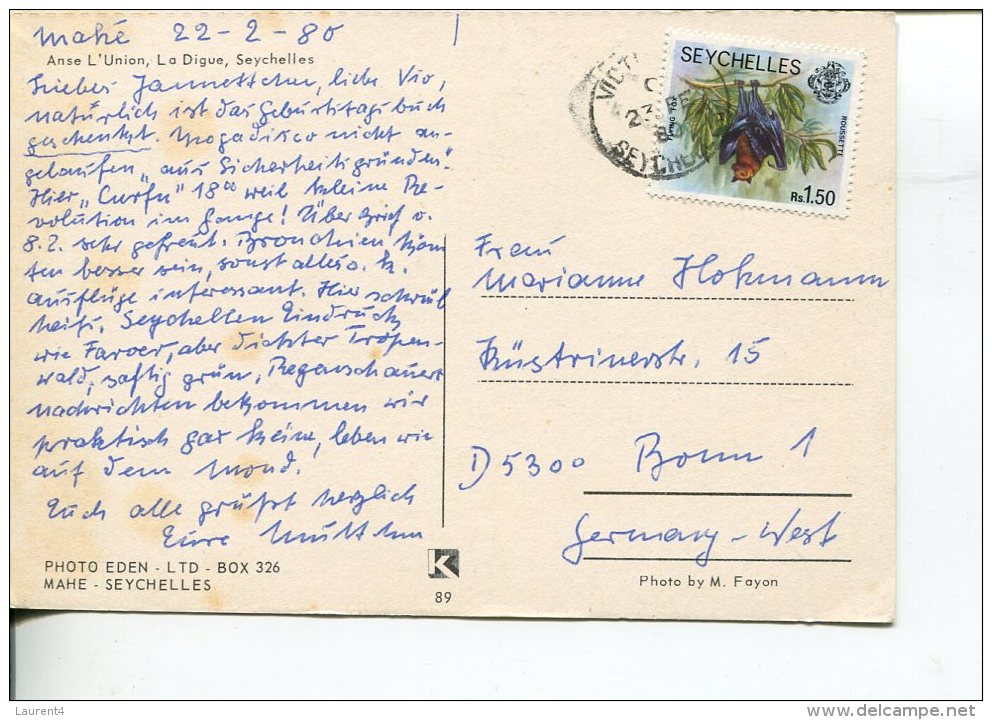 Mahé 22-2-80
Anse L'Union, La Digue, Seychelles
Liebes Jannettchen, liebe Vio,
natürlich ist das Geburtstagsbuch
geschenkt. Mogadisco nicht an-
gelaufen „aus Sicherheitsgründen".
Hier „Curfu" 18°° weil kleine Re-
volution im Gange! Über Brief v.
8.2. sehr gefreut. Bronchien könn
ten besser sein, sonst alles o.k.
Ausflüge interessant. Hier schwül
heiß. Seychellen Eindruck
wie Faroer, aber dichter Tropen-
wald, saftig grün, Regenschauer
Nachrichten bekommen wir
praktisch gar keine, leben wie
auf dem Mond.
Euch alle grüßt herzlich
Eure Muttchen
PHOTO EDEN - LTD - BOX 326
MAHE - SEYCHELLES
K
89
SEYCHELLES
FLYING FOX
ROUSSETTE
Rs.1.50
VICT
23 FE
SEYCHE
Frau
Marianne Hokmann
Küstrinerstr. 15
D 5300 Bonn 1
Germany-West
Photo by M. Fayon
Laurent4
www.delcampe.net